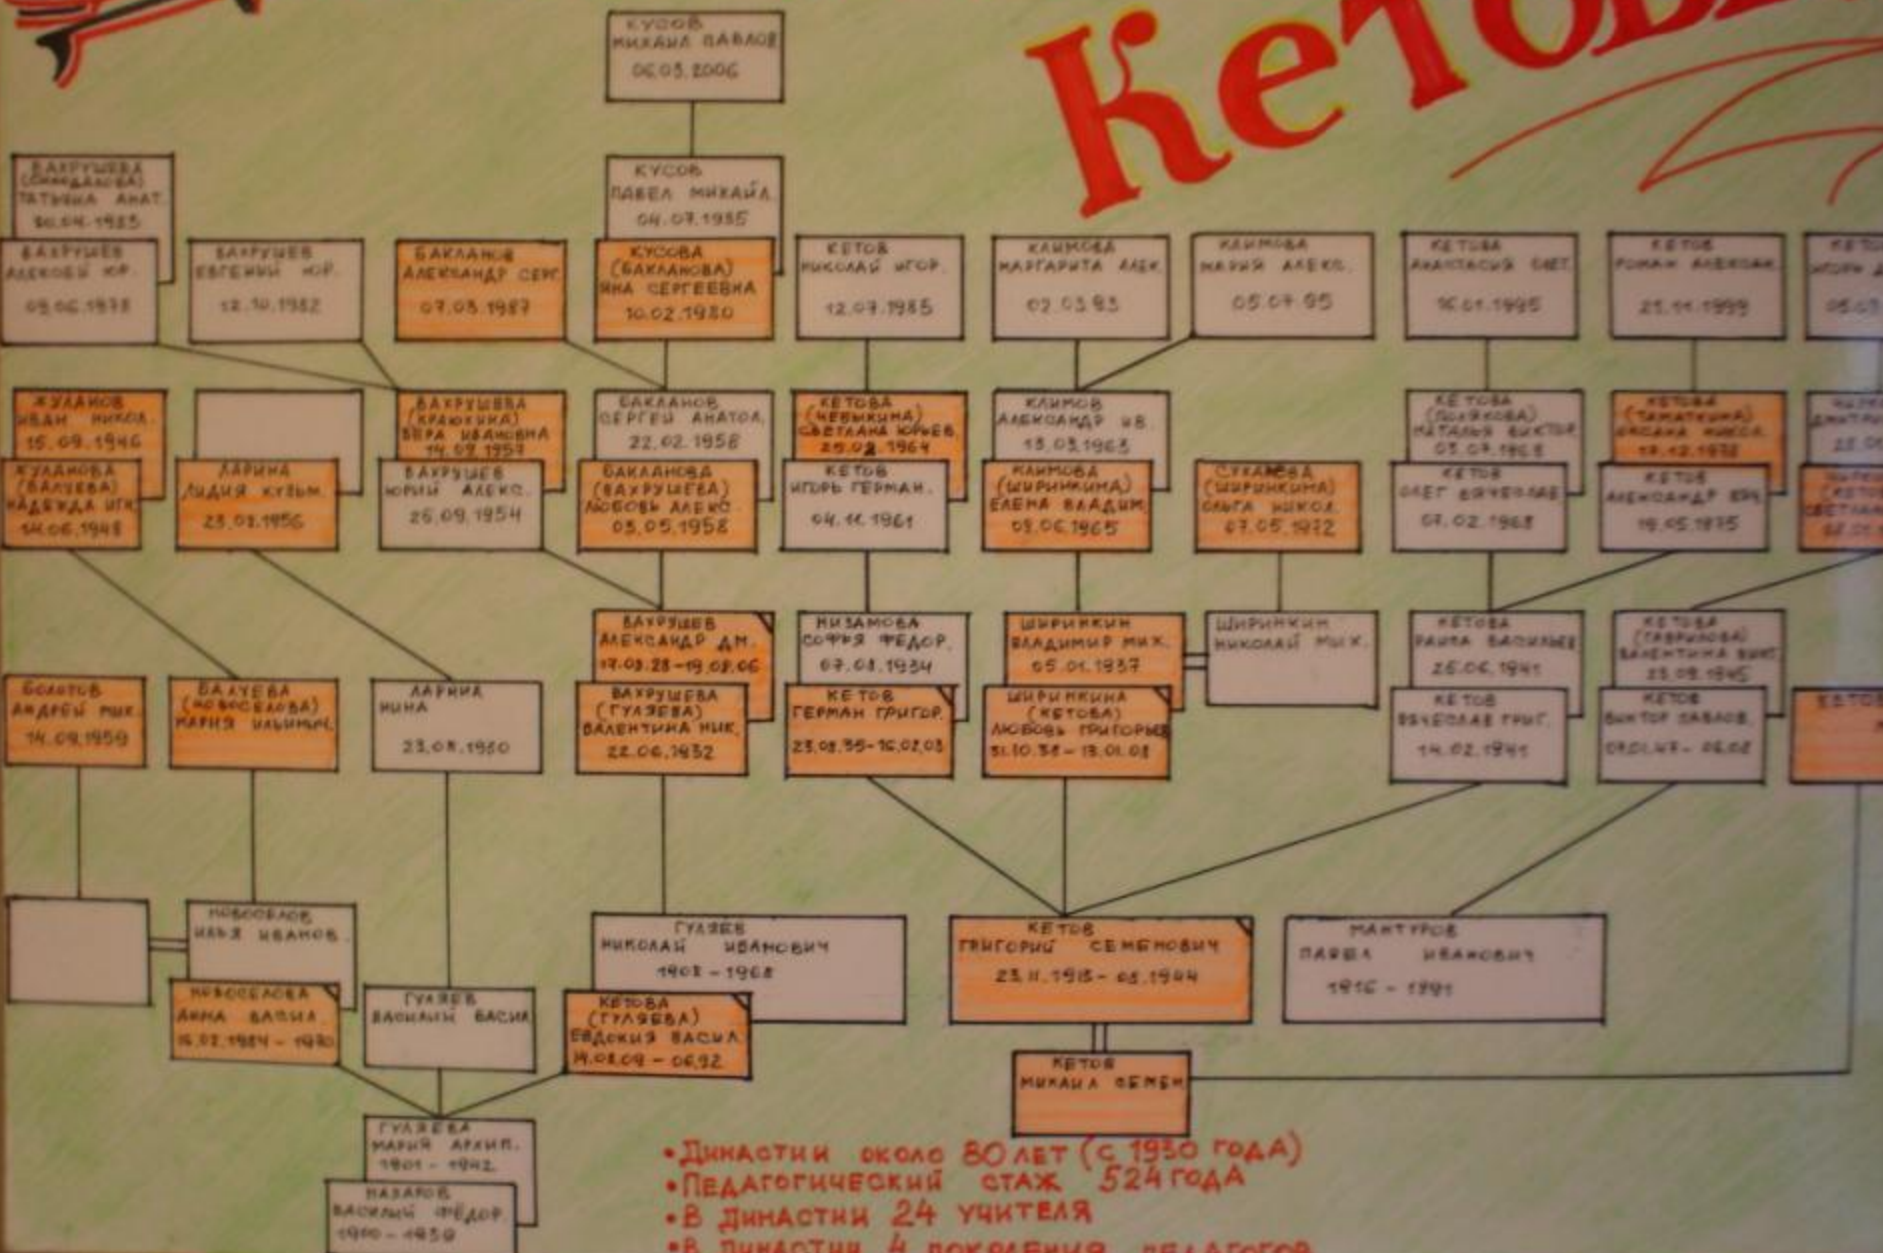 КЕТОВ
КУСОВ
МИХАИЛ ПАВЛОВ
06.03.2006
ВАХРУШЕВА
ТАТЬЯНА АНАТ.
КУСОВ
ПАВЕЛ МИХАЙЛ.
04.07.1985
ВАХРУШЕВ
АЛЕКСЕЙ ЮР.
09.06.1978
ВАХРУШЕВ
ЕВГЕНИЙ ЮР.
12.10.1982
БАКЛАНОВ
АЛЕКСАНДР СЕРГ.
07.03.1987
КУСОВА
(БАКЛАНОВА)
ЯНА СЕРГЕЕВНА
10.02.1980
КЕТОВ
НИКОЛАЙ ИГОР.
12.07.1985
КЛИМОВА
МАРГАРИТА АЛЕК.
КЛИМОВА
МАРИЯ АЛЕКС.
05.07.95
КЕТОВА
АНАСТАСИЯ
16.01.1995
КЕТОВ
РОМАН АЛЕКСАН.
21.11.1999
ЖУЛАНОВ
ИВАН НИКОЛ.
15.09.1946
ВАХРУШЕВА
(КРАЮХИНА)
ВЕРА ИВАНОВНА
БАКЛАНОВ
СЕРГЕЙ АНАТОЛ.
22.02.1958
КЕТОВА
(ЧЕБЫКИНА)
СВЕТЛАНА ЮРЬЕВ.
КЛИМОВ
АЛЕКСАНДР ИВ.
13.03.1963
КЕТОВА
(ПОЛЯКОВА)
НАТАЛЬЯ ВИКТОР.
КЕТОВА
ОКСАНА НИКОЛ.
ЖУЛАНОВА
(БАЛУЕВА)
НАДЕЖДА ИГН.
14.06.1948
ЛАРИНА
ЛИДИЯ КУЗЬМ.
ВАХРУШЕВ
ЮРИЙ АЛЕКС.
26.09.1954
БАКЛАНОВА
(ВАХРУШЕВА)
ЛЮБОВЬ АЛЕКС.
03.05.1958
КЕТОВ
ИГОРЬ ГЕРМАН.
04.11.1961
КЛИМОВА
(ШИРИНКИНА)
ЕЛЕНА ВЛАДИМ.
09.06.1965
(ШИРИНКИНА)
ОЛЬГА НИКОЛ.
07.05.1972
КЕТОВ
ОЛЕГ ВЯЧЕСЛАВ.
07.02.1968
КЕТОВ
АЛЕКСАНДР ВЯЧ.
19.05.1975
ВАХРУШЕВ
АЛЕКСАНДР ДМ.
НИЗАМОВА
СОФЬЯ ФЕДОР.
07.08.1934
ШИРИНКИН
ВЛАДИМИР МИХ.
05.01.1937
ШИРИНКИН
НИКОЛАЙ МИХ.
КЕТОВА
РАИСА ВАСИЛЬЕВ
26.06.1941
КЕТОВА
(ГАВРИЛОВА)
ВАЛЕНТИНА ВИКТ.
БОЛОТОВ
АНДРЕЙ МИК.
14.09.1959
БАЛУЕВА
(НОВОСЕЛОВА)
МАРИЯ ИЛЬИНИЧ.
ЛАРИНА
НИНА
ВАХРУШЕВА
(ГУЛЯЕВА)
ВАЛЕНТИНА НИК.
22.06.1932
КЕТОВ
ГЕРМАН ГРИГОР.
ШИРИНКИНА
(КЕТОВА)
ЛЮБОВЬ ГРИГОРЬЕВ
КЕТОВ
ВЯЧЕСЛАВ ГРИГ.
14.02.1941
КЕТОВ
ВИКТОР ПАВЛОВ.
НОВОСЕЛОВ
ИЛЬЯ ИВАНОВ.
ГУЛЯЕВ
НИКОЛАЙ ИВАНОВИЧ
1908 - 1968
КЕТОВ
ГРИГОРИЙ СЕМЕНОВИЧ
МАНТУРОВ
ПАВЕЛ ИВАНОВИЧ
1916 - 1991
НОВОСЕЛОВА
АННА ВАСИЛ.
ГУЛЯЕВ
ВАСИЛИЙ ВАСИЛ
КЕТОВА
(ГУЛЯЕВА)
ЕВДОКИЯ ВАСИЛ.
КЕТОВ
МИХАИЛ СЕМЕН
ГУЛЯЕВА
МАРИЯ АРХИП.
1901 - 1942
НАЗАРОВ
ВАСИЛИЙ ФЁДОР.
• ДИНАСТИИ ОКОЛО 80 ЛЕТ (С 1930 ГОДА)
• ПЕДАГОГИЧЕСКИЙ СТАЖ 524 ГОДА
• В ДИНАСТИИ 24 УЧИТЕЛЯ
• В ДИНАСТИИ 4 ПОКОЛЕНИЯ ПЕДАГОГОВ